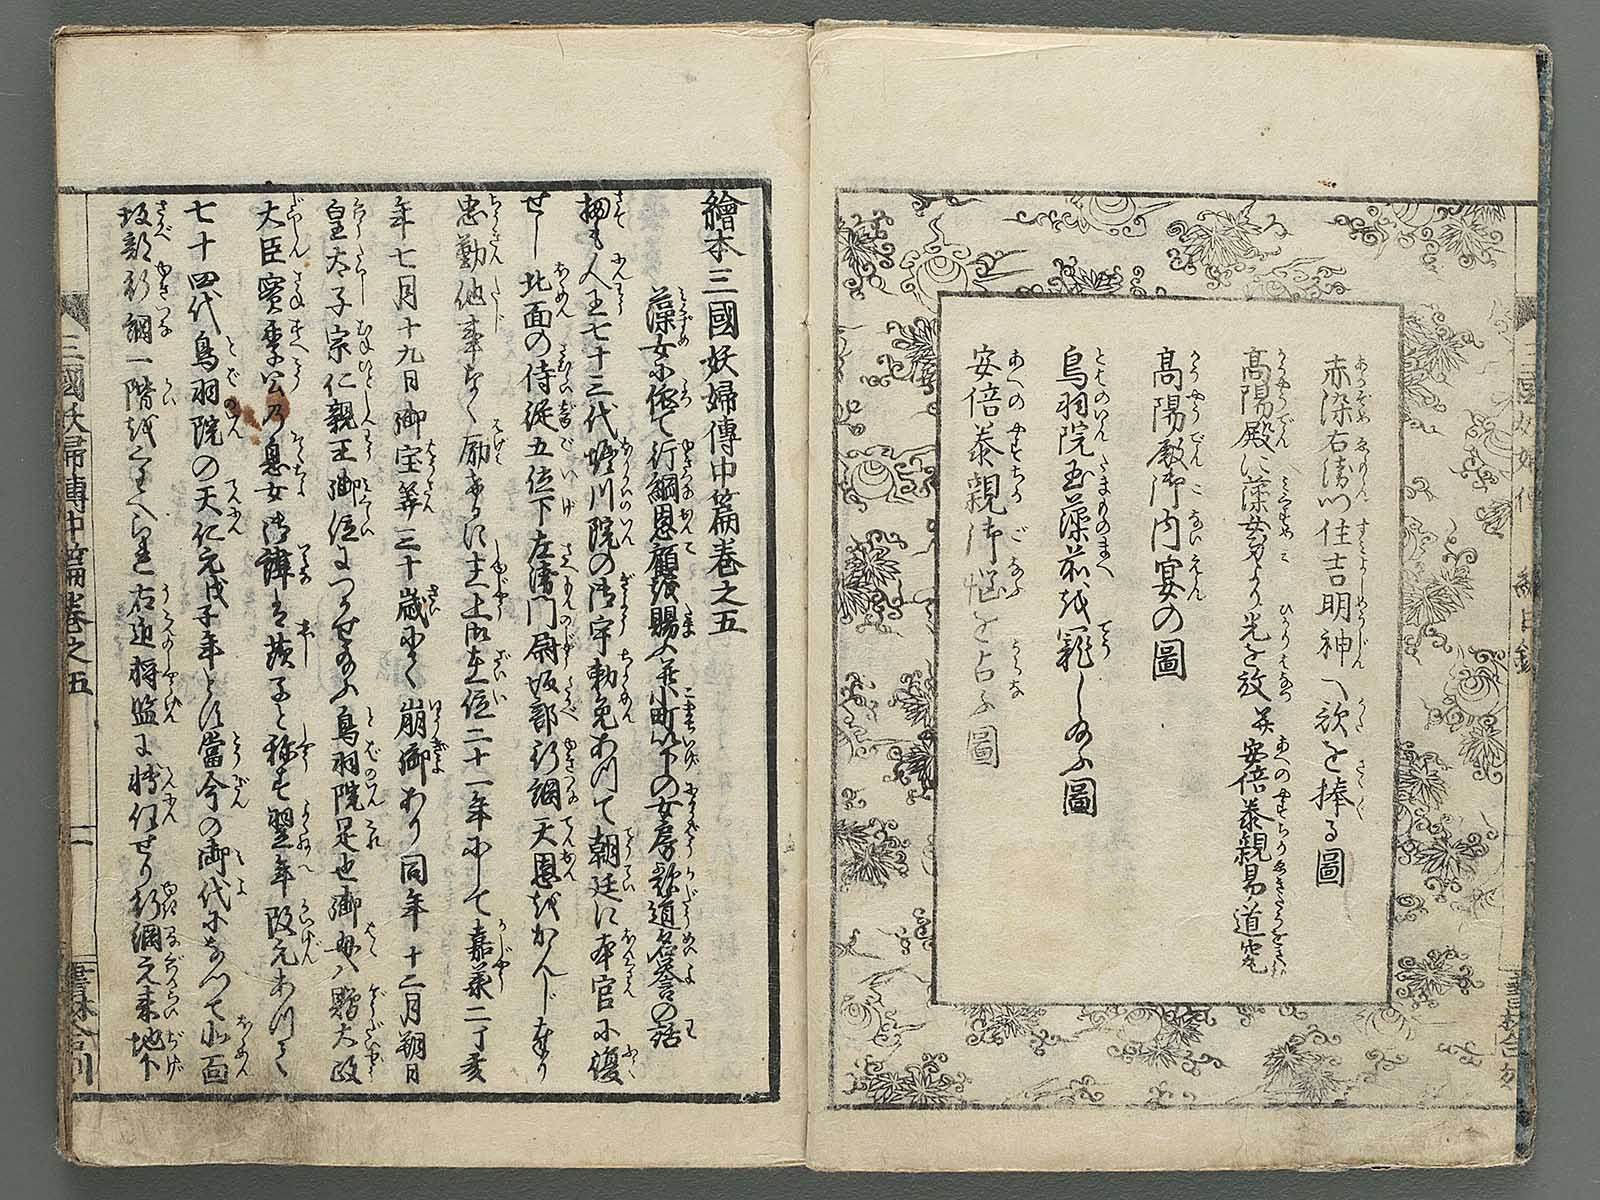 赤染右衛門住吉明神へ歌を捧る圖
高陽殿に藻女身より光を放 并 安倍泰親易道
高陽殿御内宴の圖
鳥羽院玉藻前を寵し給ふ圖
安倍泰親御悩を占ふ圖
繪本三國妖婦傳中篇巻之五
藻女小依て行綱恩顧を賜ふ并小町以下の女房歌道名誉の話
扨も人王七十三代堀川院の御宇勅免あつて朝廷に本官に復
せし北面の侍従五位下左衛門尉坂部行綱天恩をかんじ奉り
忠勤他事なく励ける主上御在位二十一年にして嘉承二丁亥
年七月十九日御宝算三十歳にて崩御あり同年十二月朔日
皇太子宗仁親王御位につかせ給ふ鳥羽院是也御母ハ贈太政
大臣實季公乃息女御諱は茨子と称す翌年改元あつて
七十四代鳥羽院の天仁元戊子年と号當今の御代になつて北面
坂部行綱一階をくわへられ右近将監に轉任せり行綱元来地下
三國妖婦傳中篇巻之五
二
書林合刻